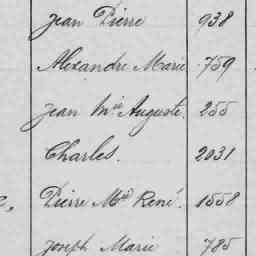 Jean Pierre 938
Alexandre Marie 759
Jean Mie Auguste. 255
Charles. 2031
Pierre Mie René. 1558
Joseph Marie 785